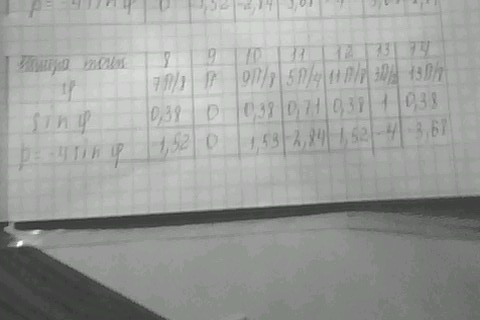 p = -4 sin φ 0
номера точки 8 9 10 11 12 13 14
φ 7П/8 П 9П/8 5П/4 11П/8 3П/2 13П/8
sin φ 0,38 0 0,38 0,71 0,38 1 0,38
p = -4 sin φ -1,52 0 1,53 -2,84 1,52 -4 -3,68